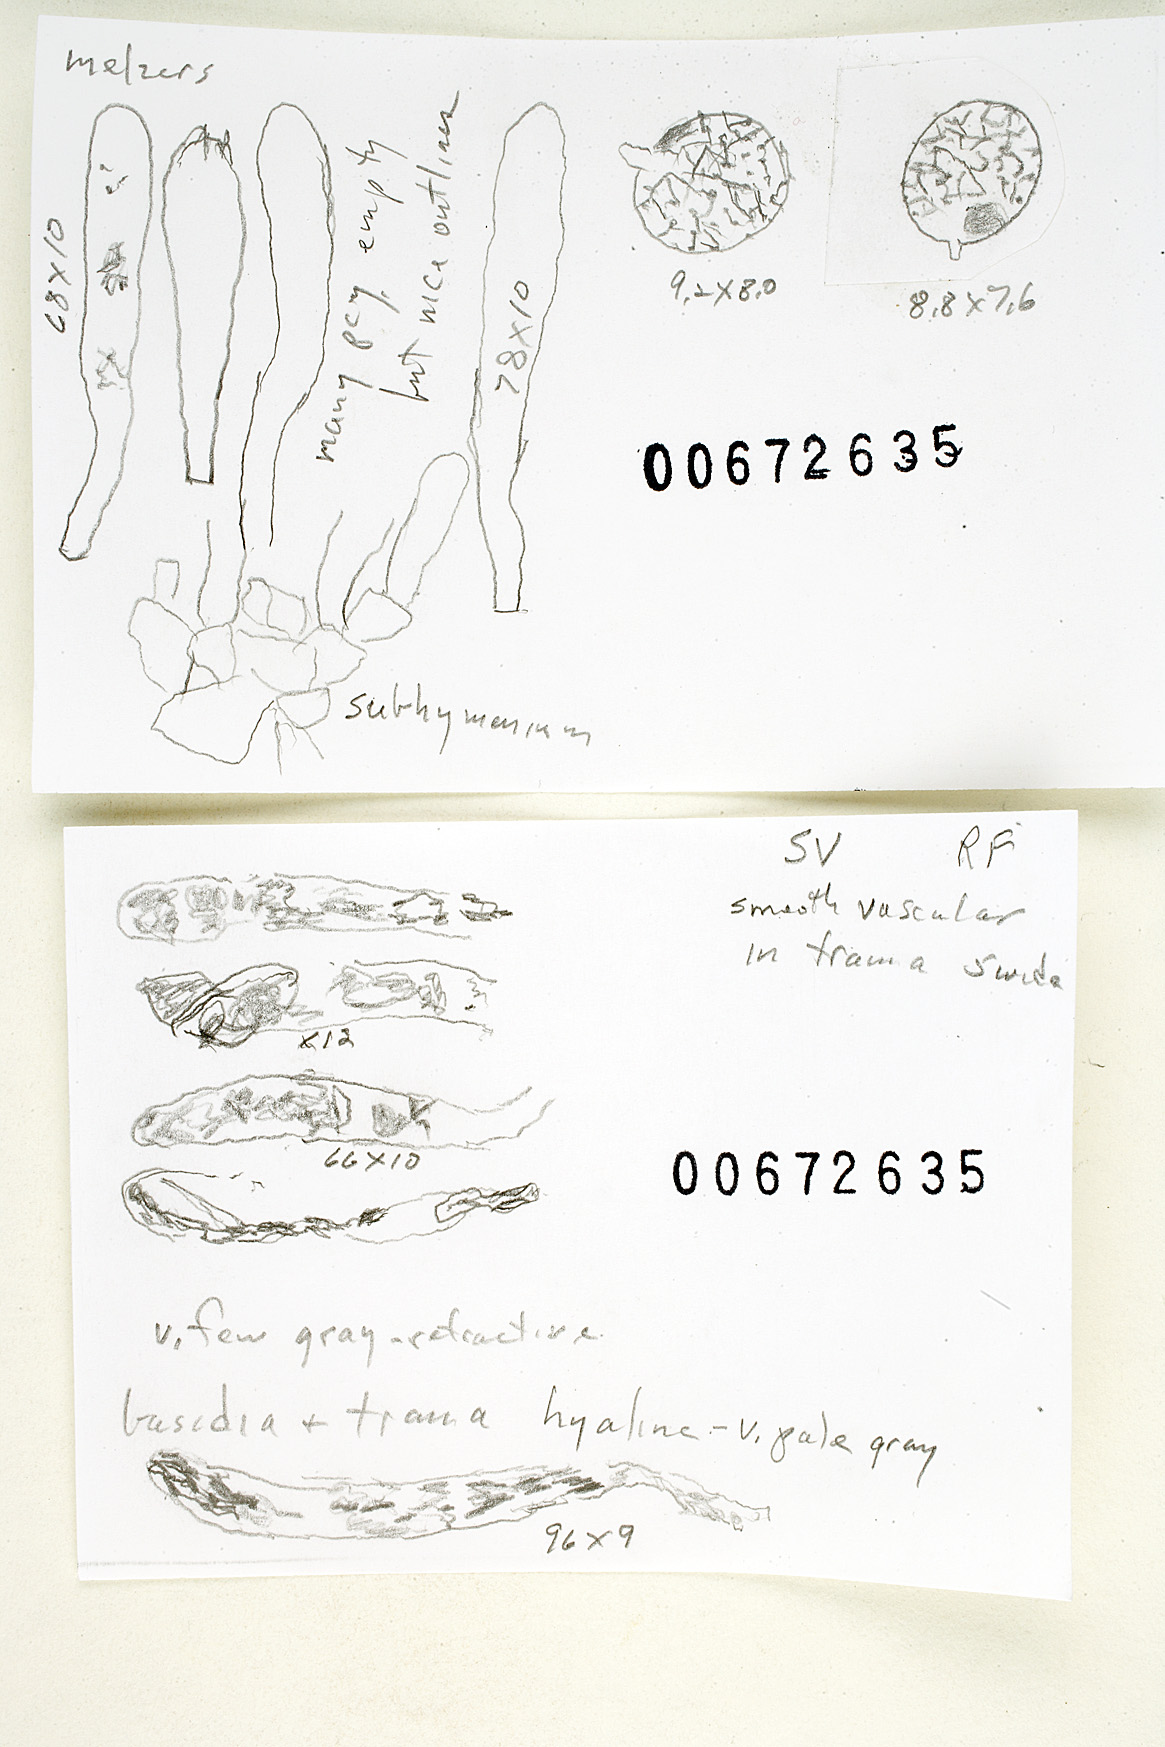 melzers
68X10
many pcy. empty
but nice outlines
78X10
9.2X8.0
8.8X7.6
00672635
subhymenium
SV RF
smooth vascular
in trama
X12
66X10
00672635
v. few gray-refractive
basidia + trama hyaline - v. pale gray
96X9